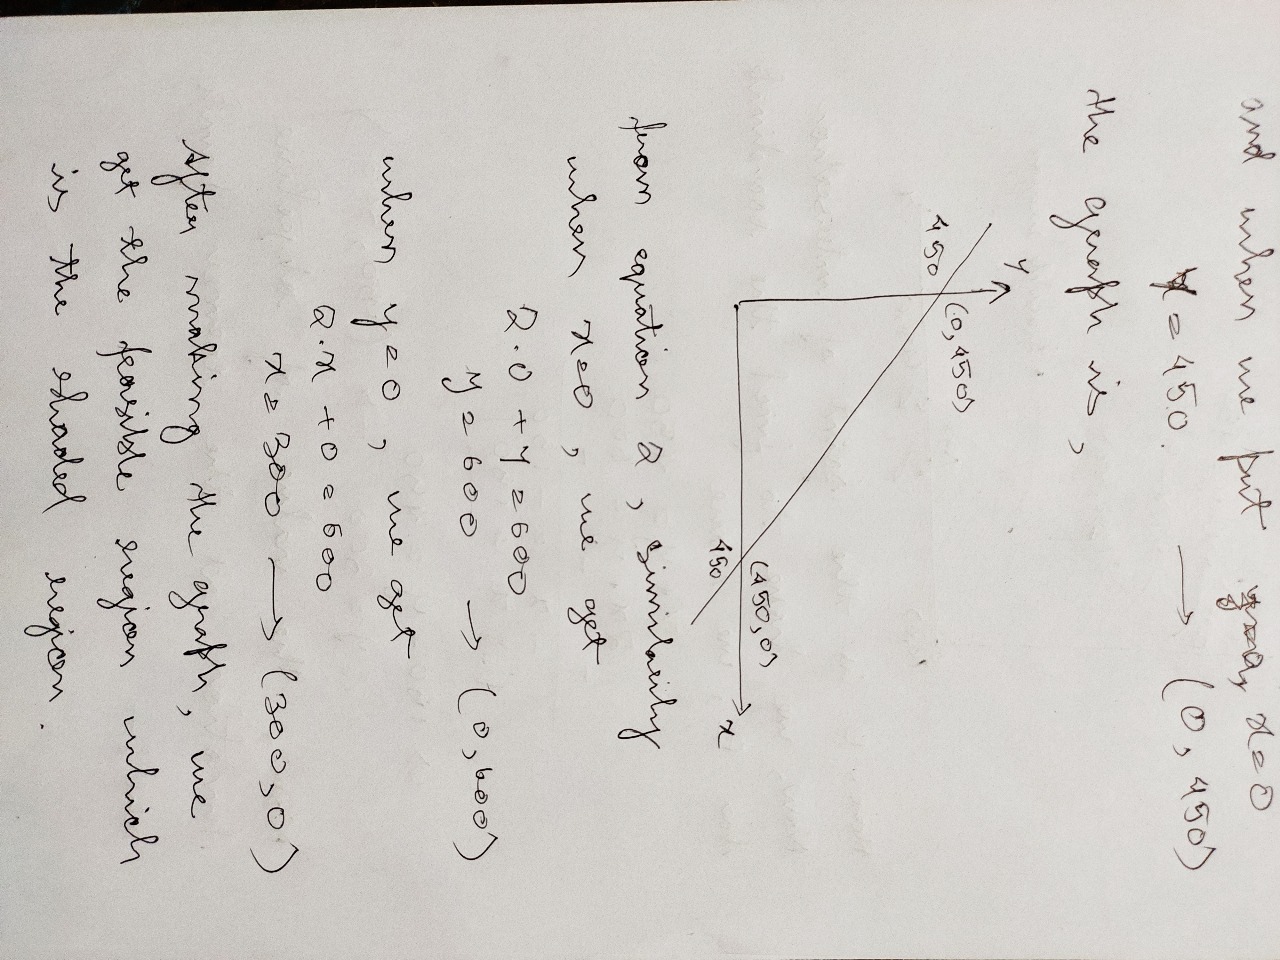 and when we put x=0
y = 450. → (0, 450)
the graph is,
y
450 (0, 450)
450 (450, 0)
x
from equation 2, similarily
when x=0, we get
2.0 + y = 600
y = 600 → (0, 600)
when y=0, we get
2.x + 0 = 600
x = 300 → (300, 0)
After making the graph, we
get the feasible region which
is the shaded region.